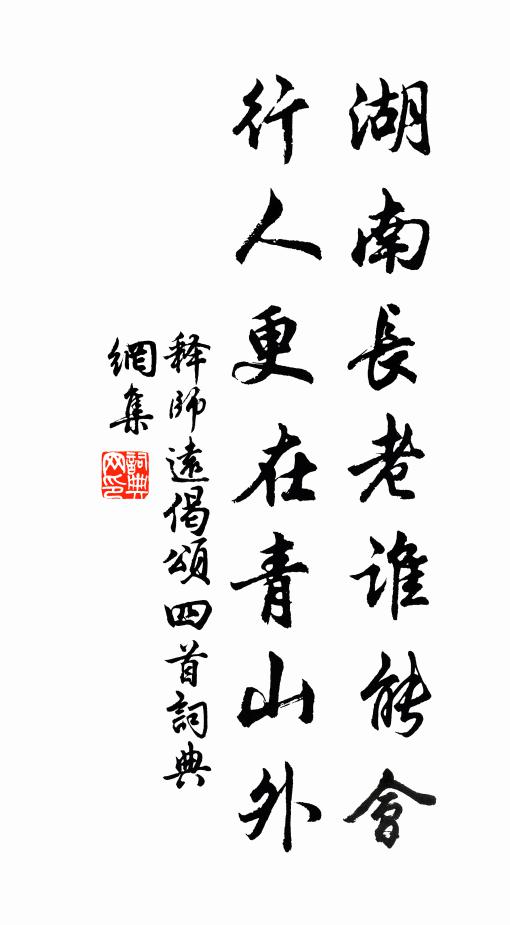 湖南長老誰能會
行人更在青山外
释師遠偈頌四首詞典
網集
詞典网印